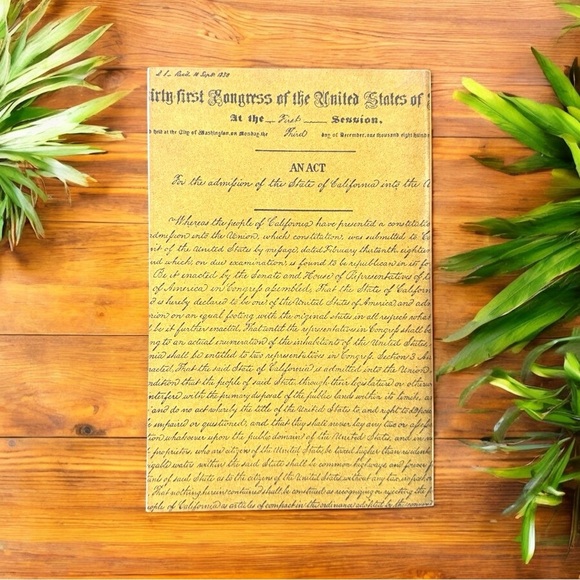 Read. 10 Sept 1850
irty-first Congress of the United States of
At the First Session.
held at the City of Washington, on Monday the Third day of December, one thousand eight hundre
AN ACT
For the admission of the State of California into the U
Whereas the people of California have presented a constitutio
admission into the Union, which constitution was submitted to Co
ent of the United States by message dated February thirteenth, eighteen
nd which, on due examination, is found to be republican in its fo
Be it enacted by the Senate and House of Representatives of t
of America in Congress assembled, That the State of Californ
d is hereby declared to be one of the United States of America and adm
nion on an equal footing with the original states in all respects what
d be it further enacted, That until the representatives in Congress shall be
ng to an actual enumeration of the inhabitants of the United States,
nia shall be entitled to two representatives in Congress. Section 3. An
nacted, That the said State of California is admitted into the Union
ndition that the people of said State, through their legislature or otherw
interfere with the primary disposal of the public lands within its limits, an
and do no act whereby the title of the United States to, and right to dispos
impaired or questioned; and that they shall never lay any tax or asses
tion whatsoever upon the public domain of the United States, and in
proprietors, who are citizens of the United States, be taxed higher than residents
igable waters within the said State shall be common highways and forever f
ants of said State as to the citizens of the United States without any tax, impost
That nothing herein contained shall be construed as recognizing or rejecting the p
eople of California as articles of compact in the ordinance adopted by the